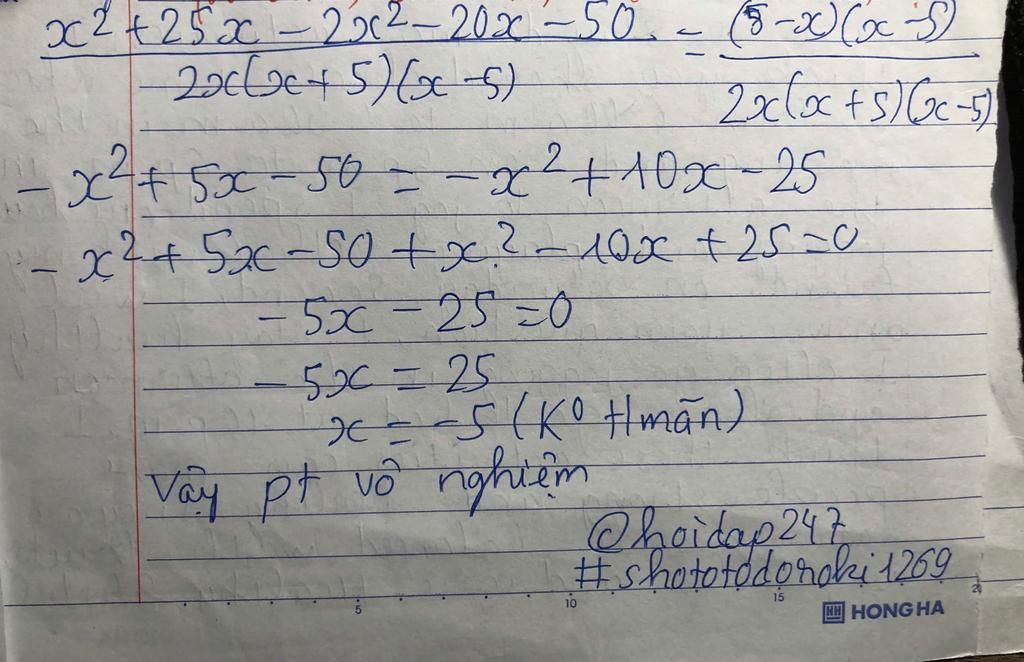 x² + 25x - 2x² - 20x - 50 = (5-x)(x-5)
2x(x+5)(x-5) 2x(x+5)(x-5)
- x² + 5x - 50 = -x² + 10x - 25
- x² + 5x - 50 + x² - 10x + 25 = 0
- 5x - 25 = 0
- 5x = 25
x = -5 (K⁰ t/mãn)
Vậy pt vô nghiệm
@hoidap247
#shototodoroki1269
5 10 15 2
HH HONG HA